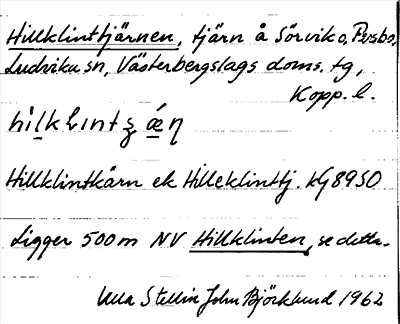 Hillklinttjärnen, tjärn å Sörvik o. Persbo,
Ludvika sn, Västerbergslags doms. tg,
Kopp. l.
Hillklintkärn ek Hilleklinttj. kG 8950
Ligger 500m NV Hillklinten, se detta.
Ulla Stellin John Björklund 1962